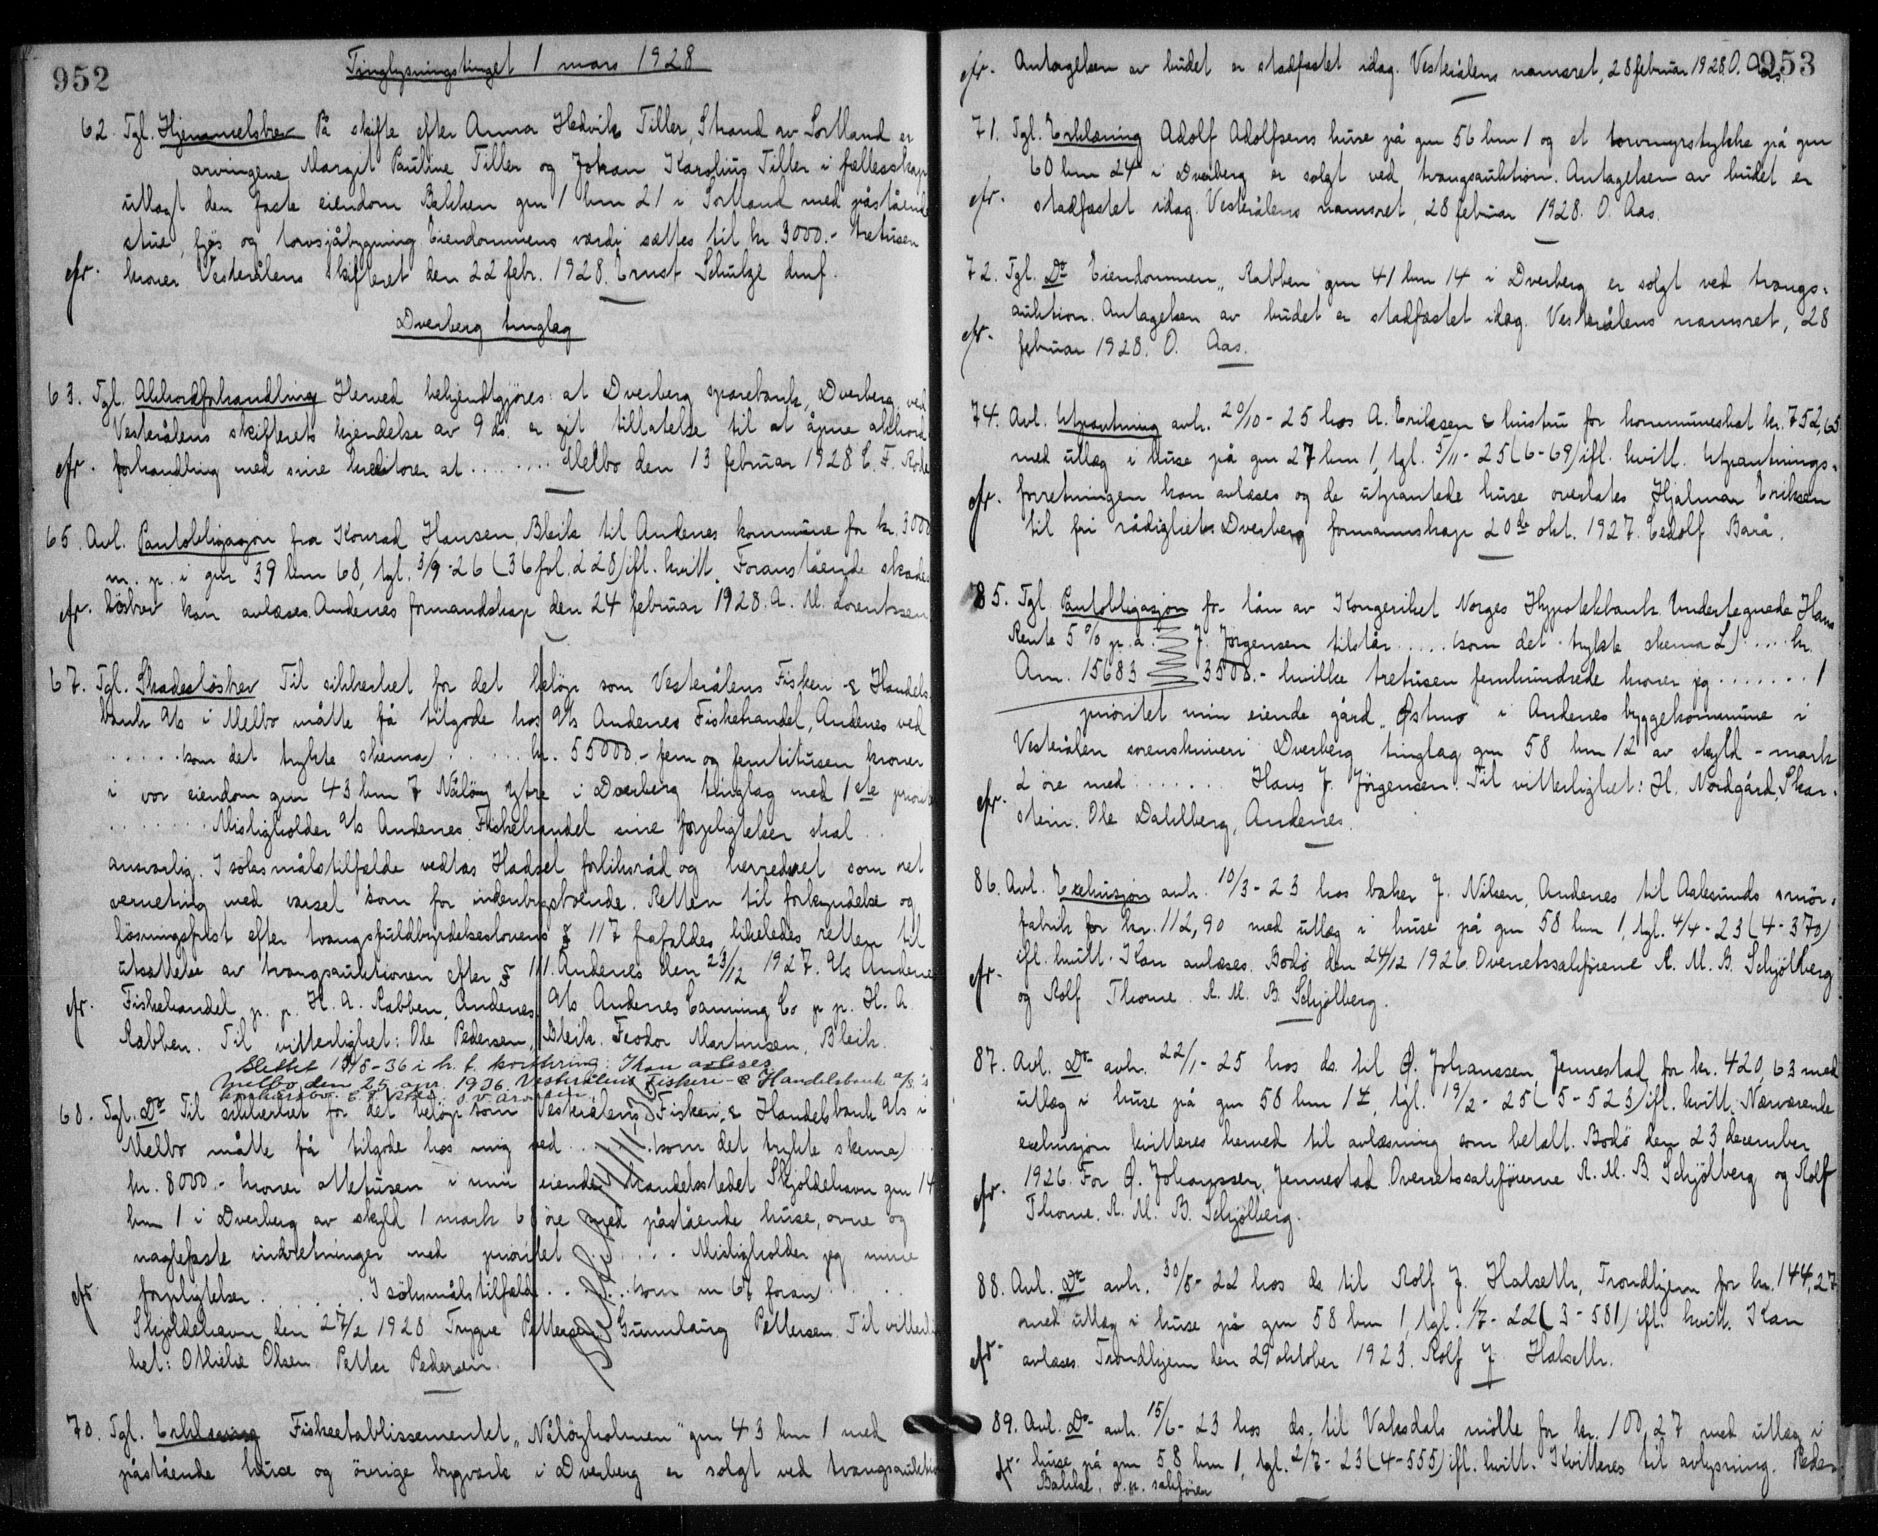 952
Tinglysningstinget 1 mars 1928
62. Tgl. Hjemmelsbrev På skifte efter Anna Hedvik Tiller, Strand av Sortland er
arvingene Margit Pauline Tiller og Johan Karolius Tiller i fellesskap
utlagt den faste eiendom Bakken gnr 1 bnr 21 i Sortland med påstående
stue, fjøs og torvsjåbygning. Eiendommens værdi sættes til kr 3000.- tretusen
efr. kroner. Vesterålens skifteret den 22 febr. 1928. Ernst Schulze dmf.
Dverberg tinglag
63. Tgl. Akkordforhandling Herved bekjendtgjøres: at Dverberg sparebank, Dverberg, ved
Vesterålens skifterets kjendelse av 9 ds. er git tillatelse til at åpne akkord
efr. forhandling med sine kreditorer at ........ Melbo den 13 februar 1928 C. F. Rode
65. Avl. Pantobligasjon fra Konrad Hansen, Bleik til Andenes kommune for kr. 3000
m. p. i gnr 39 bnr 68, tgl. 3/9-26 (36 fol. 228) ifl. kvitt. Foranstående skades
efr. løsbrev kan avlæses. Andenes formandskap den 24 februar 1928. A. M. Lorentzen
67. Tgl. Skadesløsbrev Til sikkerhet for det beløp som Vesterålens Fiskeri & Handels
bank A/s i Melbo måtte få tilgode hos A/s Andenes Fiskehandel, Andenes ved
...... som det trykte skema) ...... kr. 55000.- fem og femtitusen kroner
i vor eiendom gnr 43 bnr 7 Nåløy ytre i Dverberg tinglag med 1ste priorit
........ Misligholder A/s Andenes Fiskehandel sine forpligtelser skal ..
ansvarlig. I søksmålstilfælde vedtas Hadsel forliksråd og herredsret som ret
verneting med varsel som for indenbygsboende. Retten til forkyndelse og
løsningsfrist efter tvangsfuldbyrdelseslovens § 117 frafaldes, likeledes retten til
utsættelse av tvangsauktionen efter § 111. Andenes den 23/12 1927. A/s Andenes
efr. Fiskehandel p. p. H. A. Rabben, Andenes. A/s Andenes Canning Co p. p. H. A.
Rabben. Til vitterlighet: Ole Pedersen, Bleik. Feodor Martinsen, Bleik.
Slettet 13/5-36 i h. t. kvittering: Kan avleses
Melbo den 25 apr. 1936. Vesterålens Fiskeri- & Handelsbank A/S's
68. Tgl. Do Til sikkerhet for det beløp som Vesterålens Fiskeri & Handelsbank A/s i
Melbo måtte få tilgode hos mig ved ..... som det trykte skema) ..
kr. 8000.- kroner ottetusen i min eiende handelsstedet Skjoldehavn gnr 14
bnr 1 i Dverberg av skyld 1 mark 68 øre med påstående huse, ovne og
naglefaste indretninger med prioritet ...... Misligholder jeg mine
efr forpligtelser ...... I søksmålstilfælde ..... som nr 67 foran ....
Skjoldehavn, den 27/2 1928. Trygve Pettersen. Gunnlaug Pettersen. Til vitterlig
het: Othelie Olsen. Petter Pedersen.
70. Tgl. Erklæring Fisketablissementet „Nåløyholmen" gnr 43 bnr 1 med
påstående huse og øvrige bygverk i Dverberg er solgt ved tvangsauktion
953
efr. Antagelsen av budet er stadfæstet idag. Vesterålens namsret, 28 februar 1928 O. Aas.
71. Tgl. Erklæring Adolf Adolfsens huse på gnr 56 bnr 1 og et torvmyrstykke på gnr
60 bnr 24 i Dverberg er solgt ved tvangsauktion. Antagelsen av budet er
efr. stadfæstet idag. Vesterålens namsret, 28 februar 1928. O. Aas.
72. Tgl. Do Eiendommen „Rabben" gnr 41 bnr 14 i Dverberg er solgt ved tvangs-
auktion. Antagelsen av budet er stadfæstet idag. Vesterålens namsret, 28
efr. februar 1928. O. Aas.
74. Avl. Utpantning avh. 20/10-25 hos A. Eriksen & hustru for kommuneskat kr. 752,65
med utlæg i huse på gnr 27 bnr 1, tgl. 5/11-25 (6-69) ifl. kvitt. Utpantnings-
efr. forretningen kan avlæses og de utpantede huse overlates Hjalmar Eriksen
til fri rådighet. Dverberg formannskap 20de okt. 1927. Edolf Barå.
85. Tgl. Pantobligasjon for lån av Kongeriket Norges Hypotekbank. Undertegnede Hans
Rente 5% p. a. J. Jørgensen tilstår ..... (som det trykte skema L) .... kr.
Anm. 15683 3500.- hvilke tretusen femhundrede kroner jeg ....... 1
prioritet min eiende gård „Østmo" i Andenes byggekommune i
Vesterålen sorenskriveri Dverberg tinglag gnr 58 bnr 12 av skyld - mark
2 øre med ....... Hans J. Jørgensen. Til vitterlighet: H. Nordgård, Skar-
efr. stein. Ole Dahlberg, Andenes.
86. Avl. Exekusjon avh. 10/3-23 hos baker J. Nilsen, Andenes til Aalesunds smør-
fabrik for kr. 112,90 med utlæg i huse på gnr 58 bnr 1, tgl. 4/4-23 (4-370)
ifl. kvitt. Kan avlæses. Bodø den 24/12 1926. Overretssakførerne R. M. B. Schjølberg
efr. og Rolf Thorne. R. M. B. Schjølberg.
87. Avl. Do avh. 22/1-25 hos ds. til Ø. Johanssen, Jennestad for kr. 420,63 med
utlæg i huse på gnr 58 bnr 14, tgl. 19/2-25 (5-523) ifl. kvitt. Nærværende
exekusjon kvitteres herved til avlæsning som betalt. Bodø den 23 december
efr. 1926. For Ø. Johanssen, Jennestad Overretssakførerne R. M. B. Schjølberg og Rolf
Thorne. R. M. B. Schjølberg.
88. Avl. Do avh. 30/5-22 hos ds. til Rolf J. Halseth, Trondhjem for kr. 144,27
med utlæg i huse på gnr 58 bnr 1, tgl. 1/7-22 (3-581) ifl. kvitt. Kan
efr. avlæses. Trondhjem den 29 oktober 1923. Rolf J. Halseth.
89. Avl. Do avh. 15/6-23 hos ds. til Vaksdals mølle for kr. 100,27 med utlæg i
efr huse på gnr 58 bnr 1, tgl. 2/7-23 (4-555) ifl. kvitt. Kvitteres til avlysning. Peder
o. r. sakfører